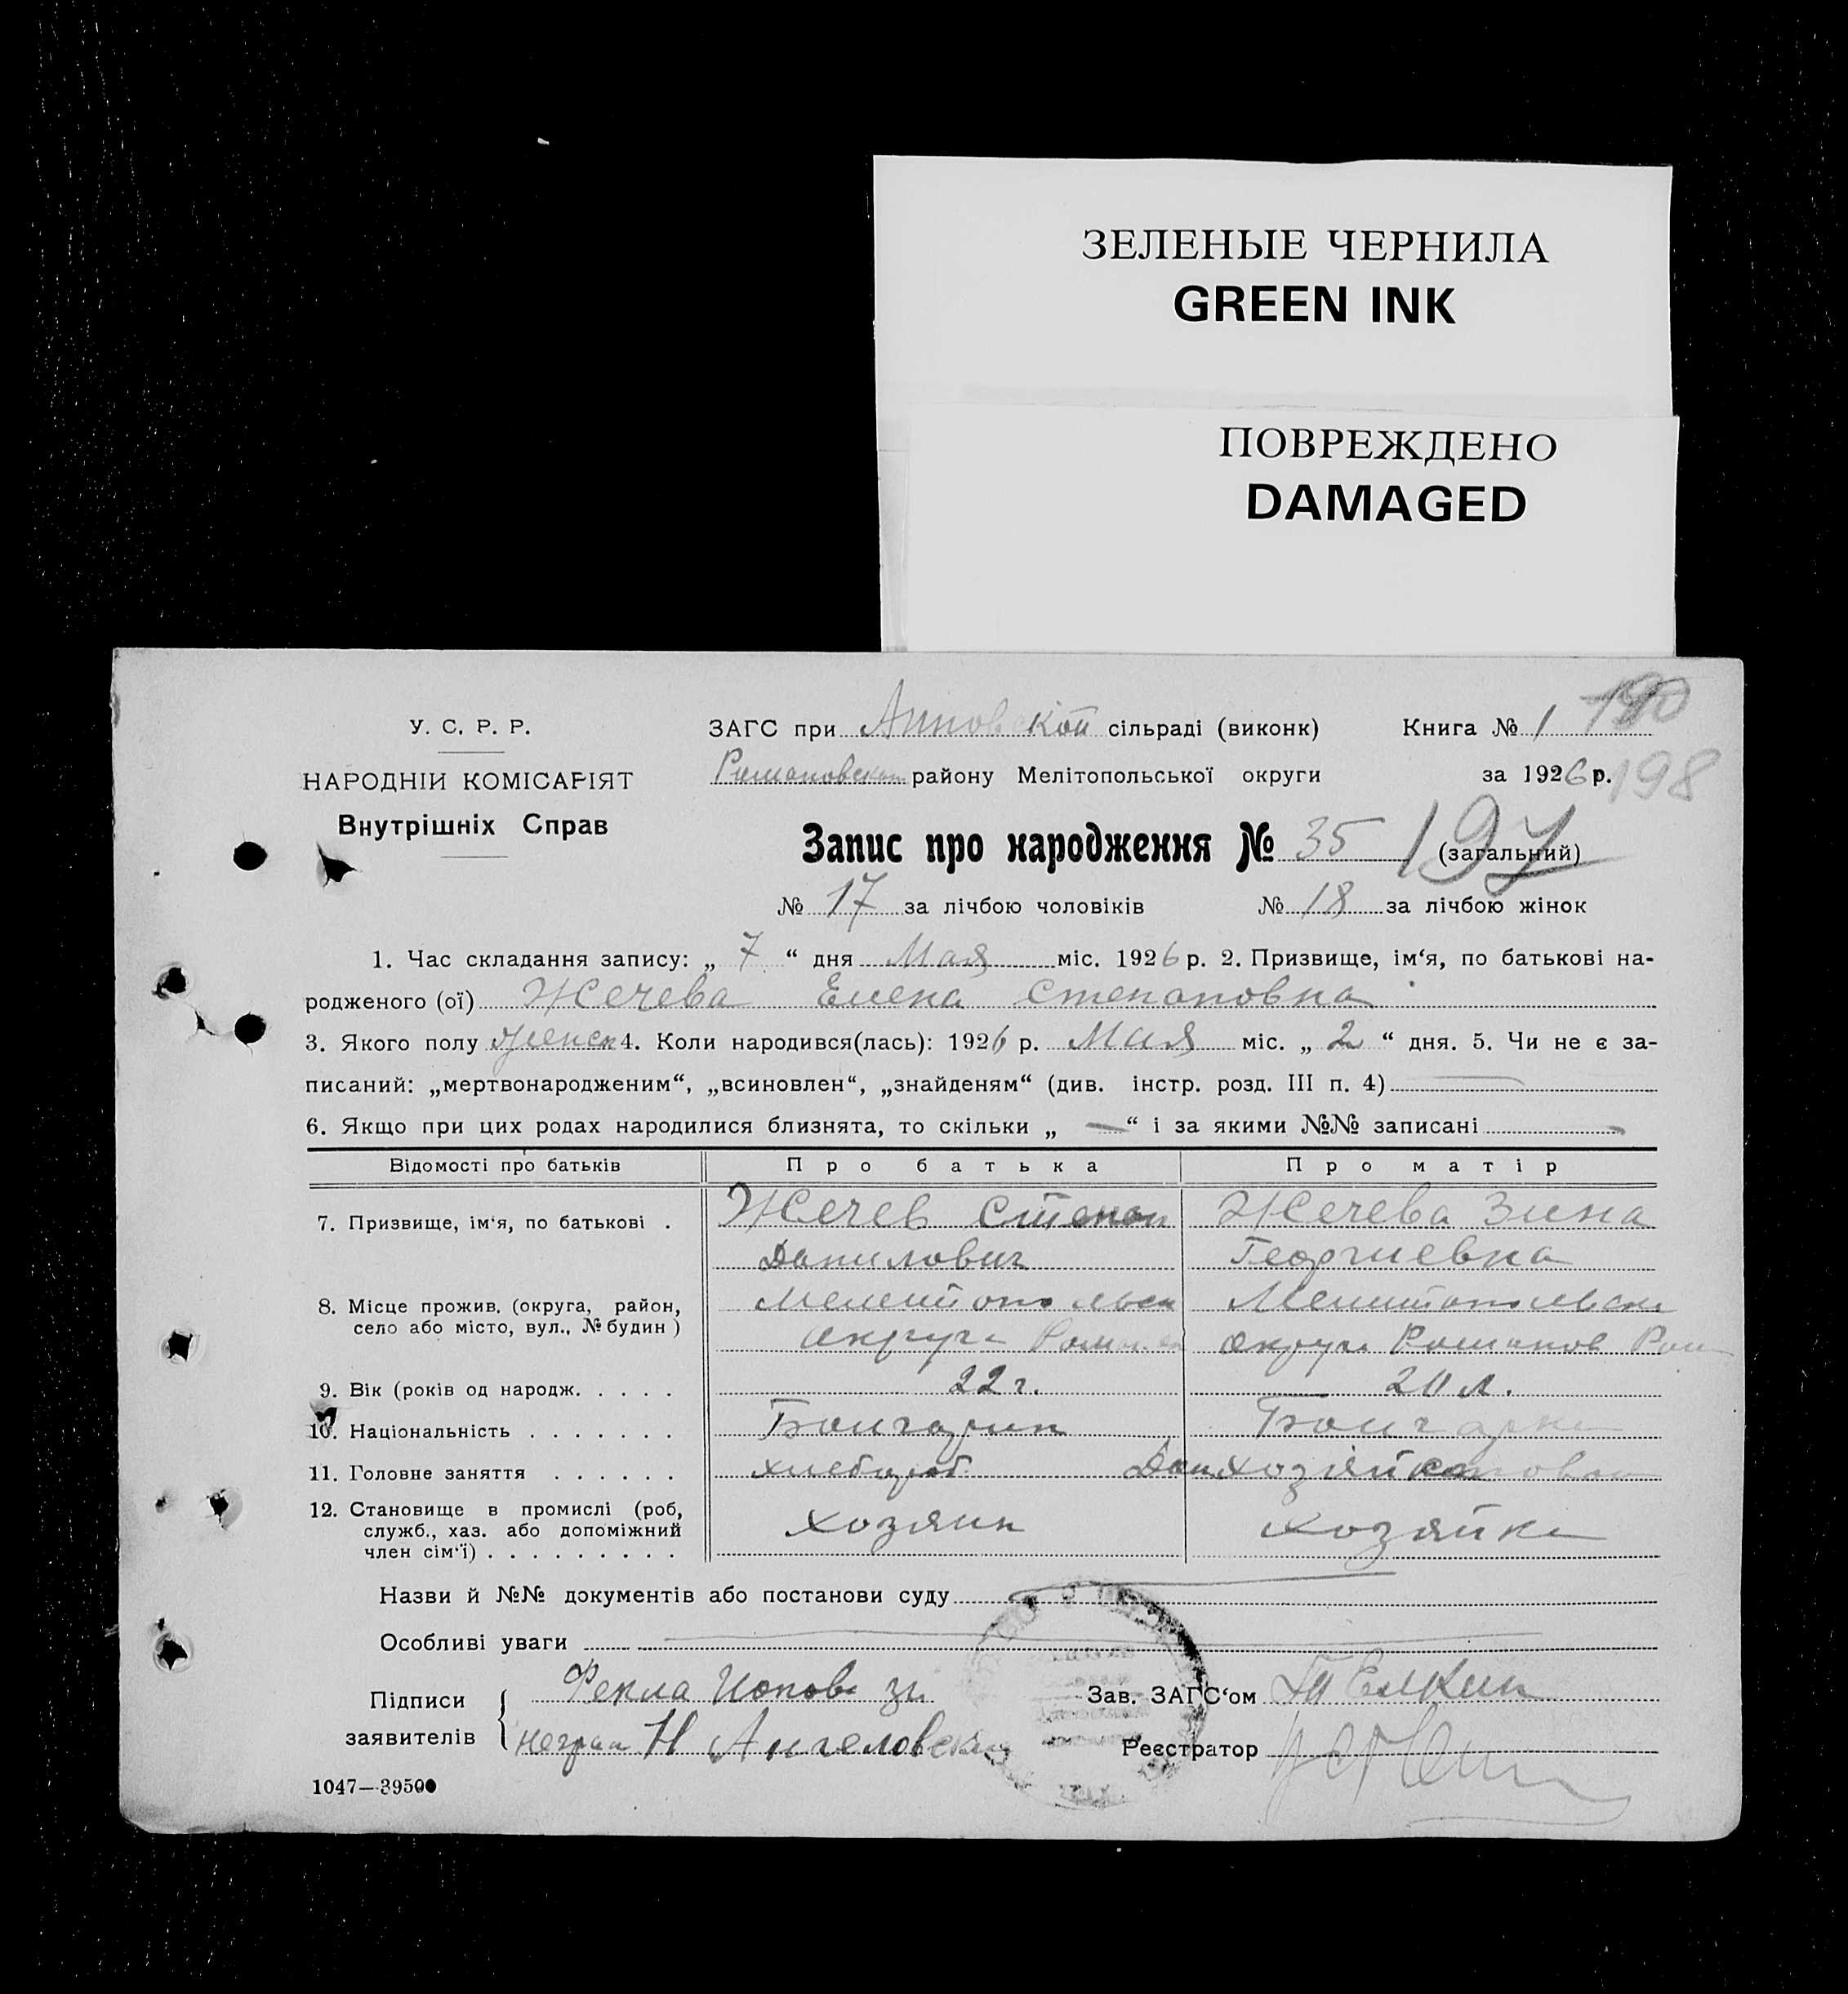 ЗЕЛЕНЫЕ ЧЕРНИЛА
GREEN INK
ПОВРЕЖДЕНО
DAMAGED
У. С. Р. Р.
НАРОДНІЙ КОМІСАРІЯТ
Внутрішніх Справ
ЗАГС при Анновской сільраді (виконк) Книга № 1 190
Романовском району Мелітопольської округи за 1926 р. 198
Запис про народження № 35 197 (загальний)
№ 17 за лічбою чоловіків № 18 за лічбою жінок
1. Час складання запису: „ 7 “ дня Мая міс. 1926 р. 2. Призвище, ім‘я, по батькові на-
родженого (ої) Жечева Елена Степановна
3. Якого полу женск 4. Коли народився(лась): 1926 р. Мая міс. „ 2 “ дня. 5. Чи не є за-
писаний: „мертвонародженим“, „всиновлен“, „знайденям“ (див. інстр. розд. III п. 4)
6. Якщо при цих родах народилися близнята, то скільки „ — “ і за якими №№ записані —
Відомості про батьків Про батька Про матір
7. Призвище, ім‘я, по батькові . Жечев Степан Жечева Зина
Данилович Георгиевна
8. Місце прожив. (округа, район, Мелитопольск Мелитопольск
село або місто, вул., № будин ) округа Роман округа Романов
9. Вік (років од народж. . . . . 22 г. 20 л.
10. Національність . . . . . . . Болгарин Болгарка
11. Головне заняття . . . . . . хлебороб Дом хозяйка
12. Становище в промислі (роб, хозяин хозяйка
служб., хаз. або допоміжний
член сім‘ї) . . . . . . . . .
Назви й №№ документів або постанови суду
Особливі уваги
Підписи Фекла Попова за Зав. ЗАГС‘ом Елкин
заявителів неграм Н Ангеловский Реєстратор
1047—39500